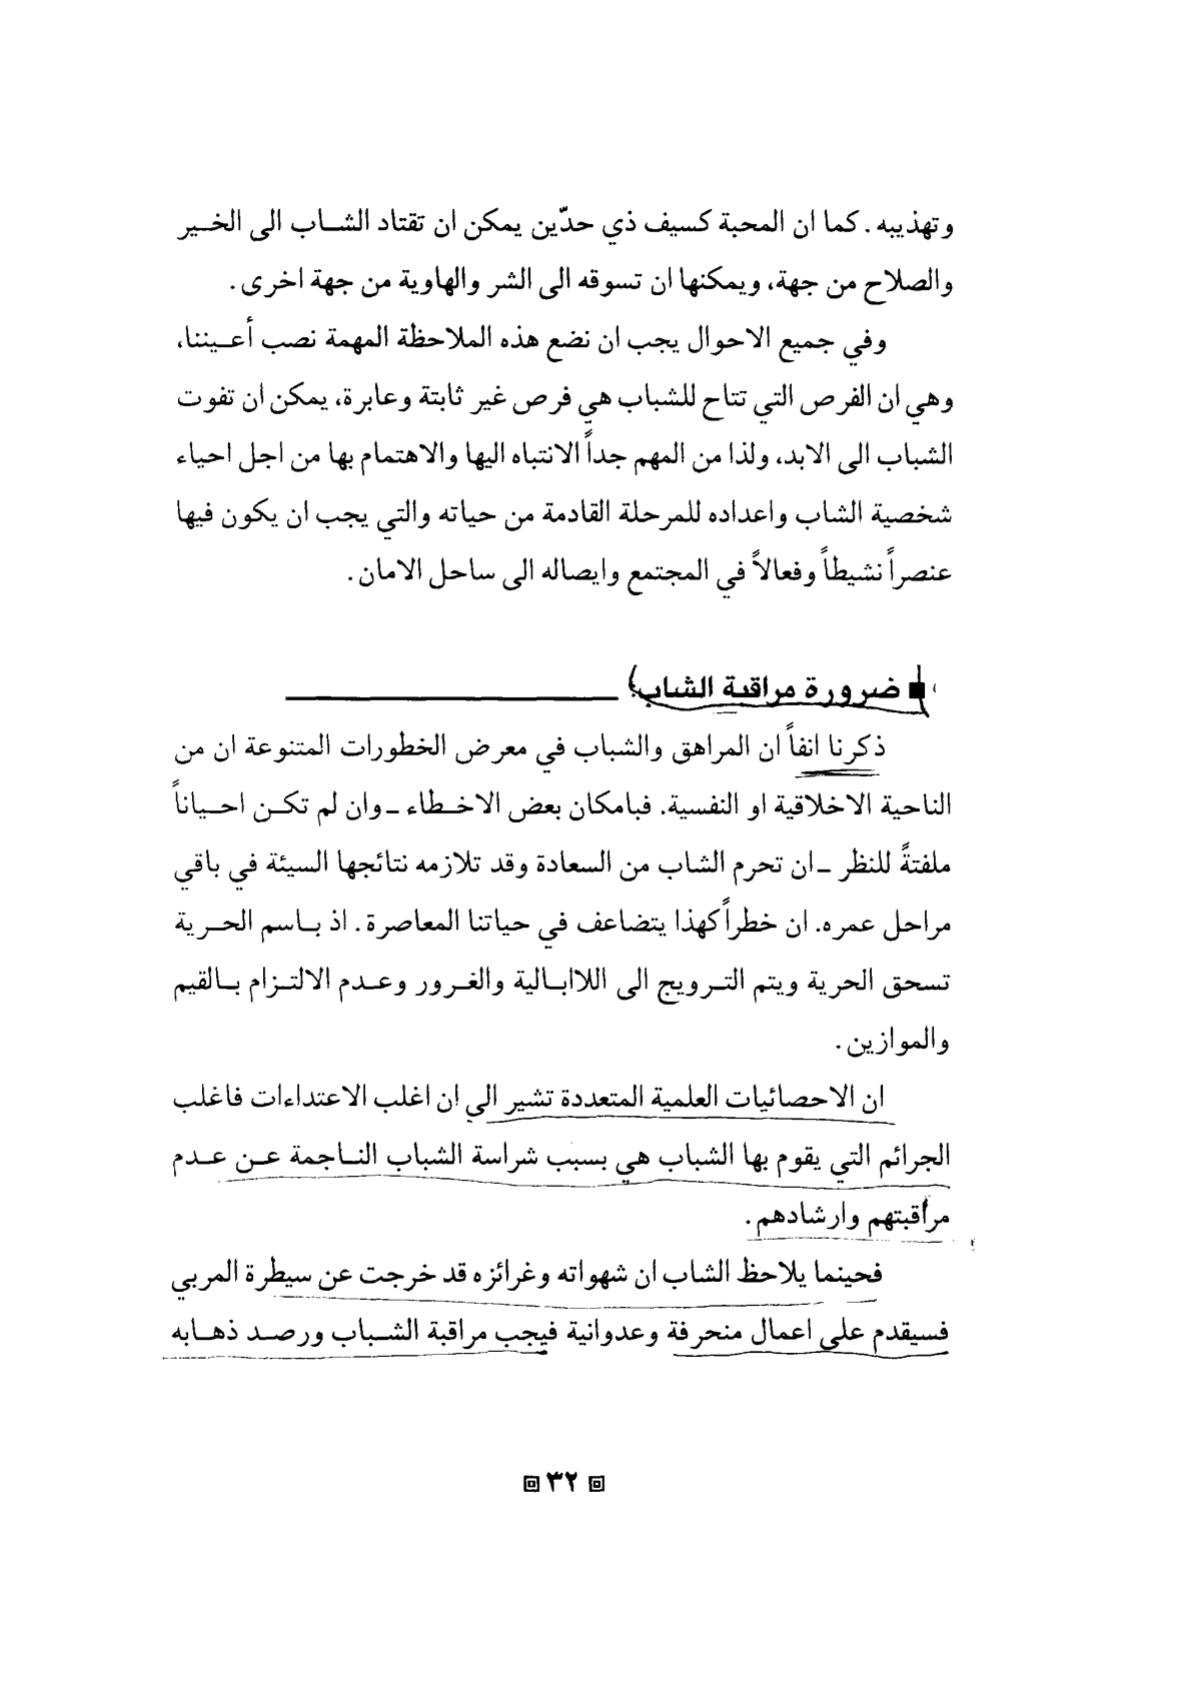 وتهذيبه . كما ان المحبة كسيف ذي حدّين يمكن ان تقتاد الشاب الى الخير
والصلاح من جهة، ويمكنها ان تسوقه الى الشر والهاوية من جهة اخرى .
وفي جميع الاحوال يجب ان نضع هذه الملاحظة المهمة نصب أعيننا،
وهي ان الفرص التي تتاح للشباب هي فرص غير ثابتة وعابرة، يمكن ان تفوت
الشباب الى الابد، ولذا من المهم جداً الانتباه اليها والاهتمام بها من اجل احياء
شخصية الشاب واعداده للمرحلة القادمة من حياته والتي يجب ان يكون فيها
عنصراً نشيطاً وفعالاً في المجتمع وايصاله الى ساحل الامان .
■ ضرورة مراقبة الشباب
ذكرنا انفاً ان المراهق والشباب في معرض الخطورات المتنوعة ان من
الناحية الاخلاقية او النفسية. فبامكان بعض الاخطاء ـ وان لم تكن احياناً
ملفتةً للنظر ـ ان تحرم الشاب من السعادة وقد تلازمه نتائجها السيئة في باقي
مراحل عمره. ان خطراً كهذا يتضاعف في حياتنا المعاصرة . اذ باسم الحرية
تسحق الحرية ويتم الترويج الى اللاابالية والغرور وعدم الالتزام بالقيم
والموازين .
ان الاحصائيات العلمية المتعددة تشير الى ان اغلب الاعتداءات فاغلب
الجرائم التي يقوم بها الشباب هي بسبب شراسة الشباب الناجمة عن عدم
مراقبتهم وارشادهم .
فحينما يلاحظ الشاب ان شهواته وغرائزه قد خرجت عن سيطرة المربي
فسيقدم على اعمال منحرفة وعدوانية فيجب مراقبة الشباب ورصد ذهابه
٣٢